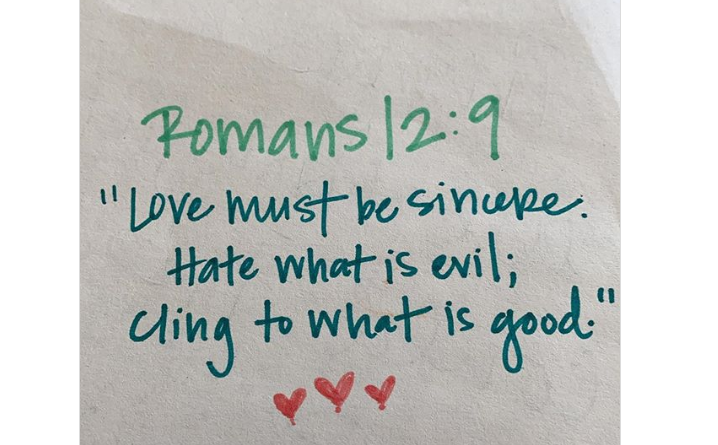 Romans 12:9
"Love must be sincere.
Hate what is evil;
cling to what is good."